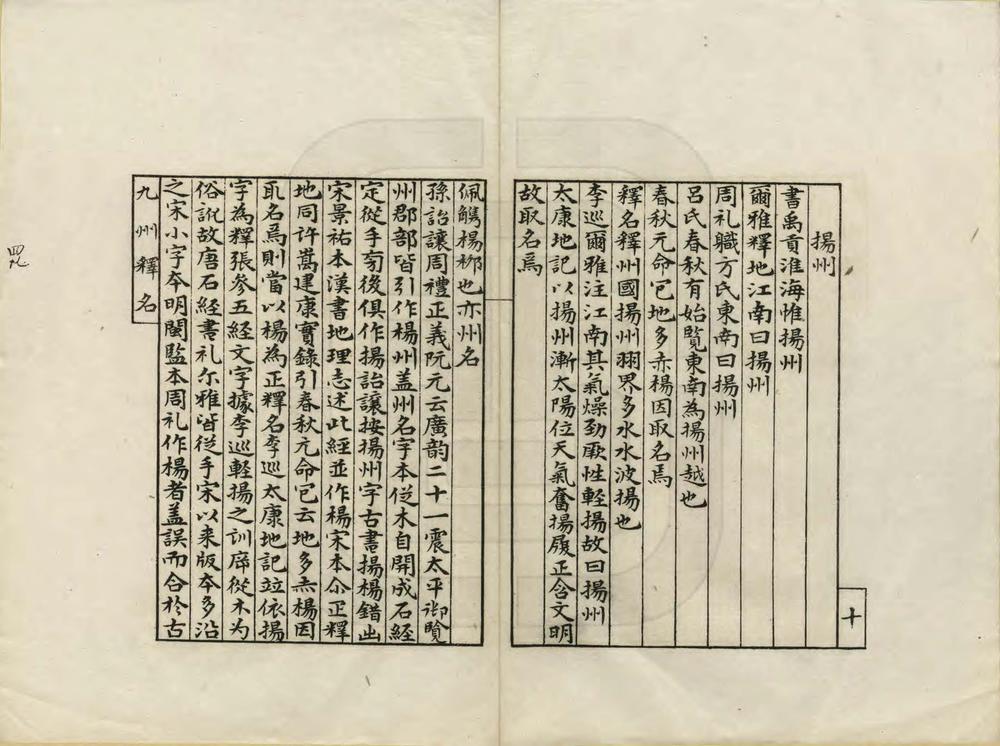 十
揚州
書禹貢淮海惟揚州
爾雅釋地江南曰揚州
周礼職方氏東南曰揚州
呂氏春秋有始覽東南為揚州越也
春秋元命包地多赤楊因取名焉
釋名釋州國揚州州界多水水波揚也
李巡爾雅注江南其氣燥勁厥性輕揚故曰揚州
太康地記以揚州漸太陽位天氣奮揚履正含文明
故取名焉
佩觿楊桺也亦州名
孫詒讓周禮正義阮元云廣韵二十一震太平御覽
州郡部皆引作楊州盖州名字本從木自開成石經
定從手旁後俱作揚詒讓按揚州字古書揚楊錯出
宋景祐本漢書地理志述此經並作楊宋本尒正釋
地同許嵩建康實錄引春秋元命包云地多赤楊因
取名焉則當以楊為正釋名李巡太康地記竝依揚
字為釋張參五經文字據李巡輕揚之訓席從木为
俗訛故唐石經書礼尔雅皆從手宋以来版本多沿
之宋小字本明閩監本周礼作楊者盖誤而合於古
九州釋名